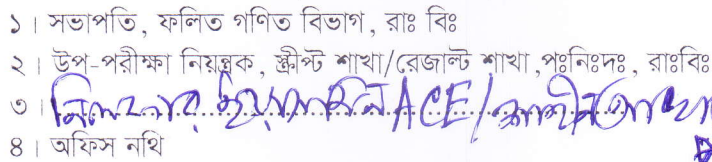 ১। সভাপতি, ফলিত গণিত বিভাগ, রাঃ বিঃ
২। উপ-পরীক্ষা নিয়ন্ত্রক, স্ক্রীপ্ট শাখা/রেজাল্ট শাখা,পঃনিঃদঃ, রাঃবিঃ
৩। ACE/
৪। অফিস নথি